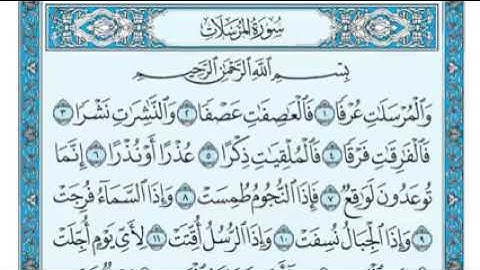 سُورَةُ المُرْسَلَات
بِسْمِ اللَّهِ الرَّحْمَٰنِ الرَّحِيمِ
وَالْمُرْسَلَاتِ عُرْفًا ١ فَالْعَاصِفَاتِ عَصْفًا ٢ وَالنَّاشِرَاتِ نَشْرًا ٣
فَالْفَارِقَاتِ فَرْقًا ٤ فَالْمُلْقِيَاتِ ذِكْرًا ٥ عُذْرًا أَوْ نُذْرًا ٦ إِنَّمَا
تُوعَدُونَ لَوَاقِعٌ ٧ فَإِذَا النُّجُومُ طُمِسَتْ ٨ وَإِذَا السَّمَاءُ فُرِجَتْ
٩ وَإِذَا الْجِبَالُ نُسِفَتْ ١٠ وَإِذَا الرُّسُلُ أُقِّتَتْ ١١ لِأَيِّ يَوْمٍ أُجِّلَتْ